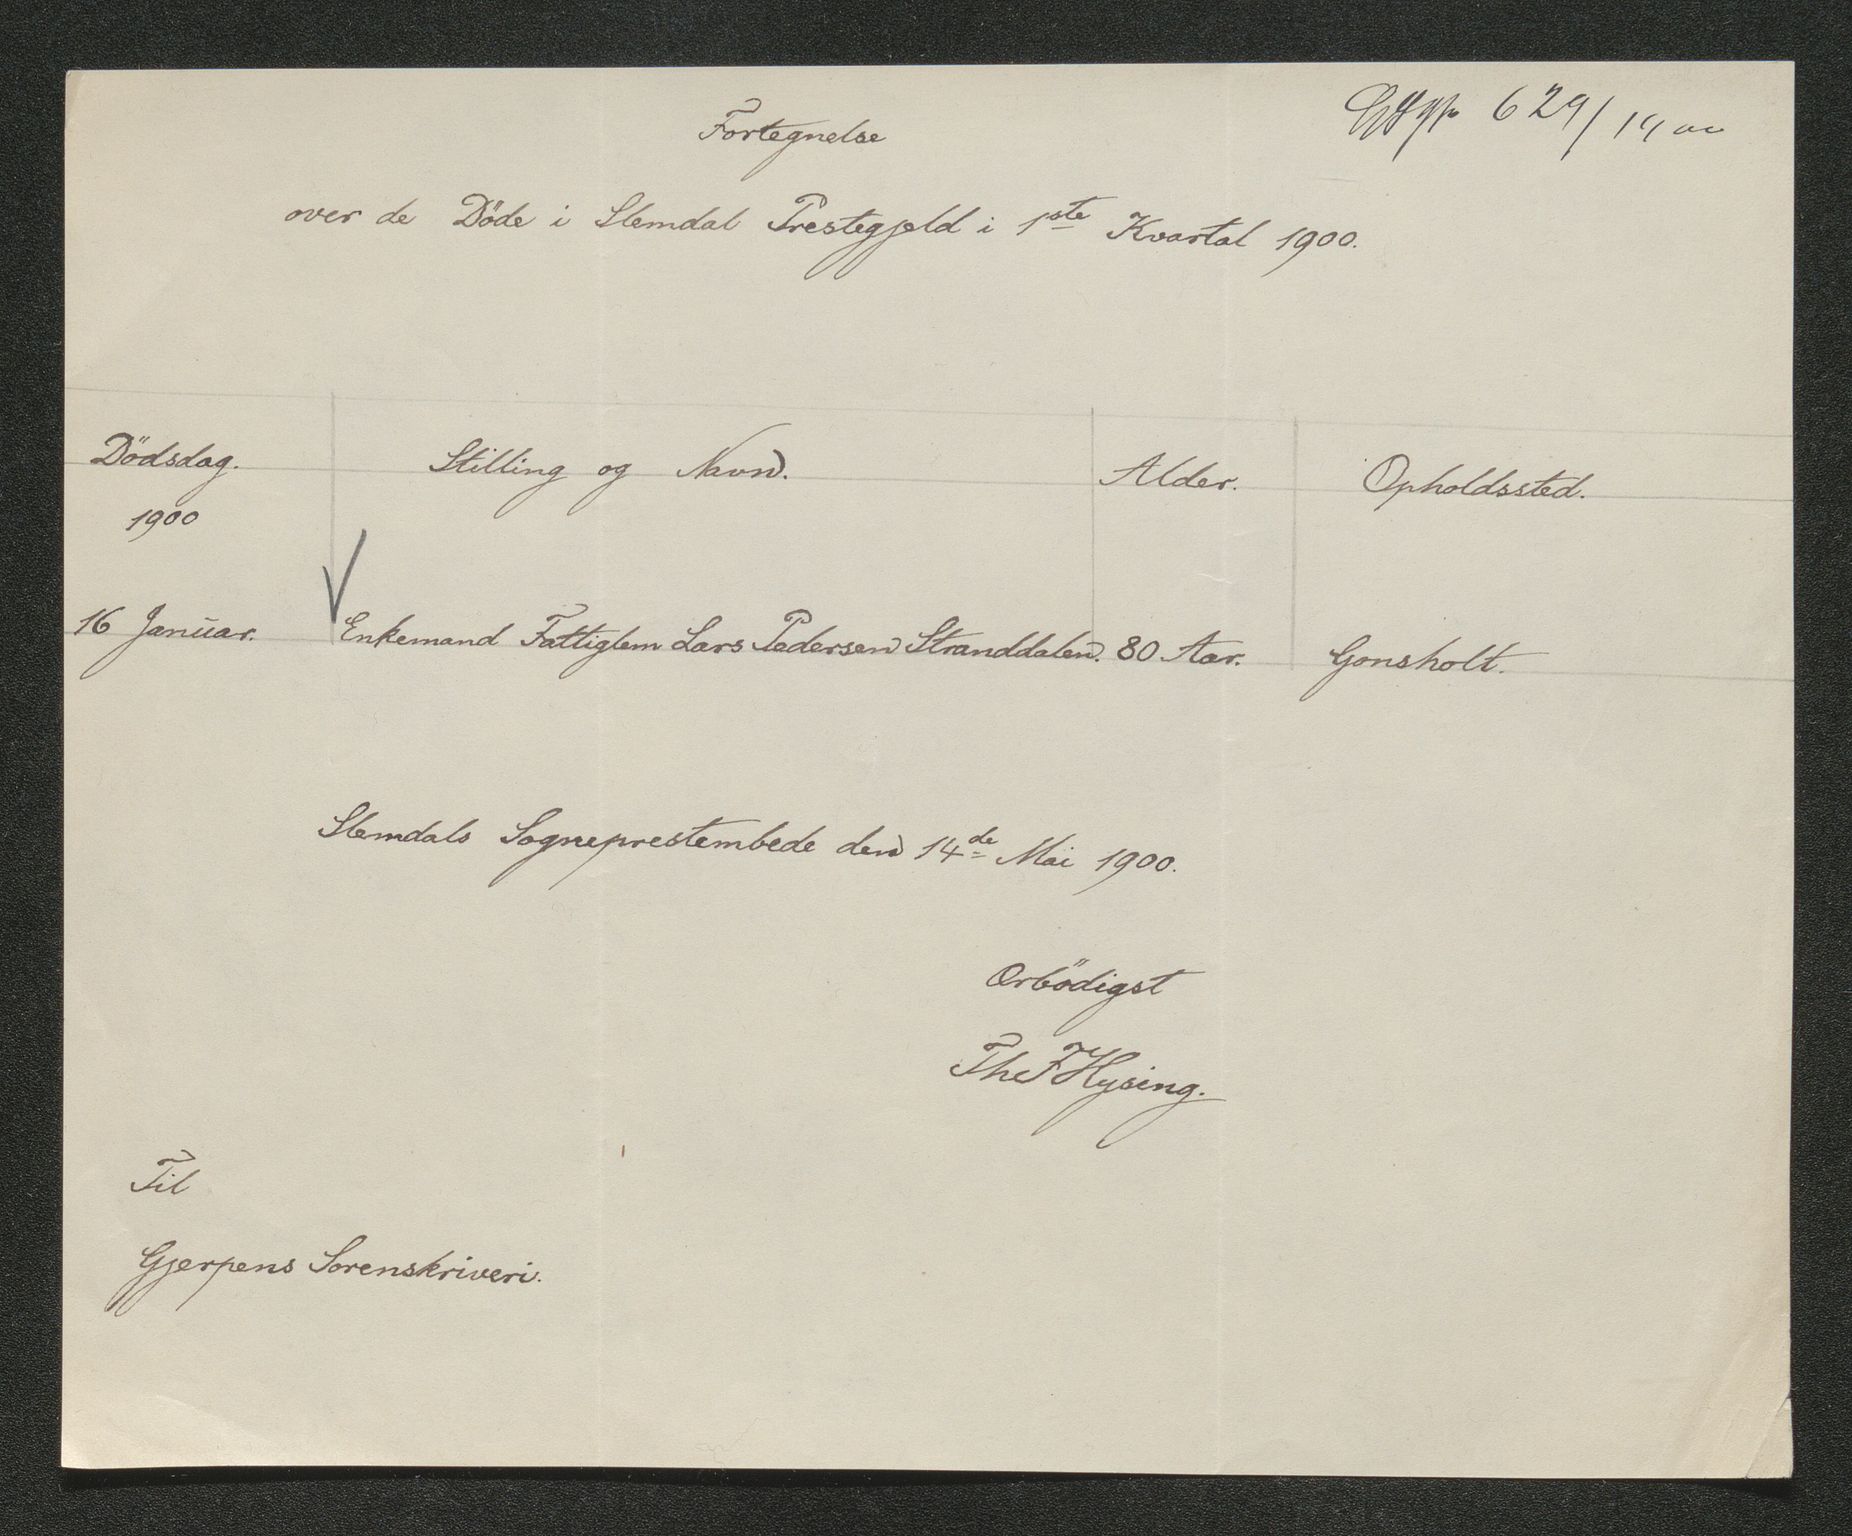 629/1900
Fortegnelse
over de Döde i Slemdal Prestegjeld i 1ste Kvartal 1900.
Dödsdag. Stilling og Navn. Alder. Opholdssted.
1900
16 Januar. Enkemand Fattiglem Lars Pedersen Stranddalen. 80 Aar. Gonsholt.
Slemdals Sogneprestembede den 14de Mai 1900.
Ærbödigst
Th F Hysing.
Til
Gjerpens Sorenskriveri.